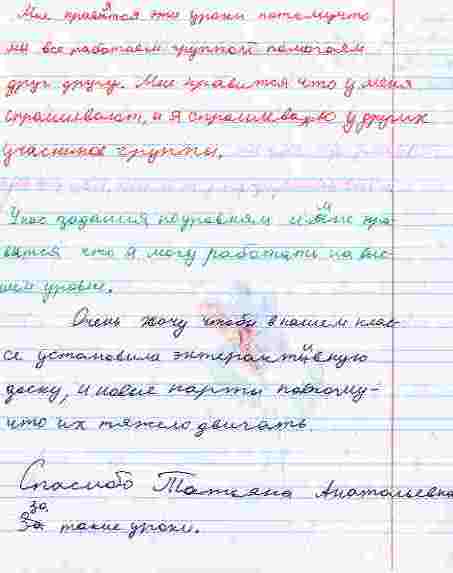 Мне нравятся эти уроки потомучто
мы все работаем групой помогаем
друг другу. Мне нравится что у меня
спрашивают, и я спрашиваю у других
учасников группы.
У нас задания по уровням и мне нра-
вится что я могу работать на выс-
шем уровне.
Очень хочу чтобы в нашем клас-
се установила энтерактивную
доску, и новые парты потому-
что их тяжело двигать.
Спасибо Татьяна Анатольевна
за
За такие уроки.